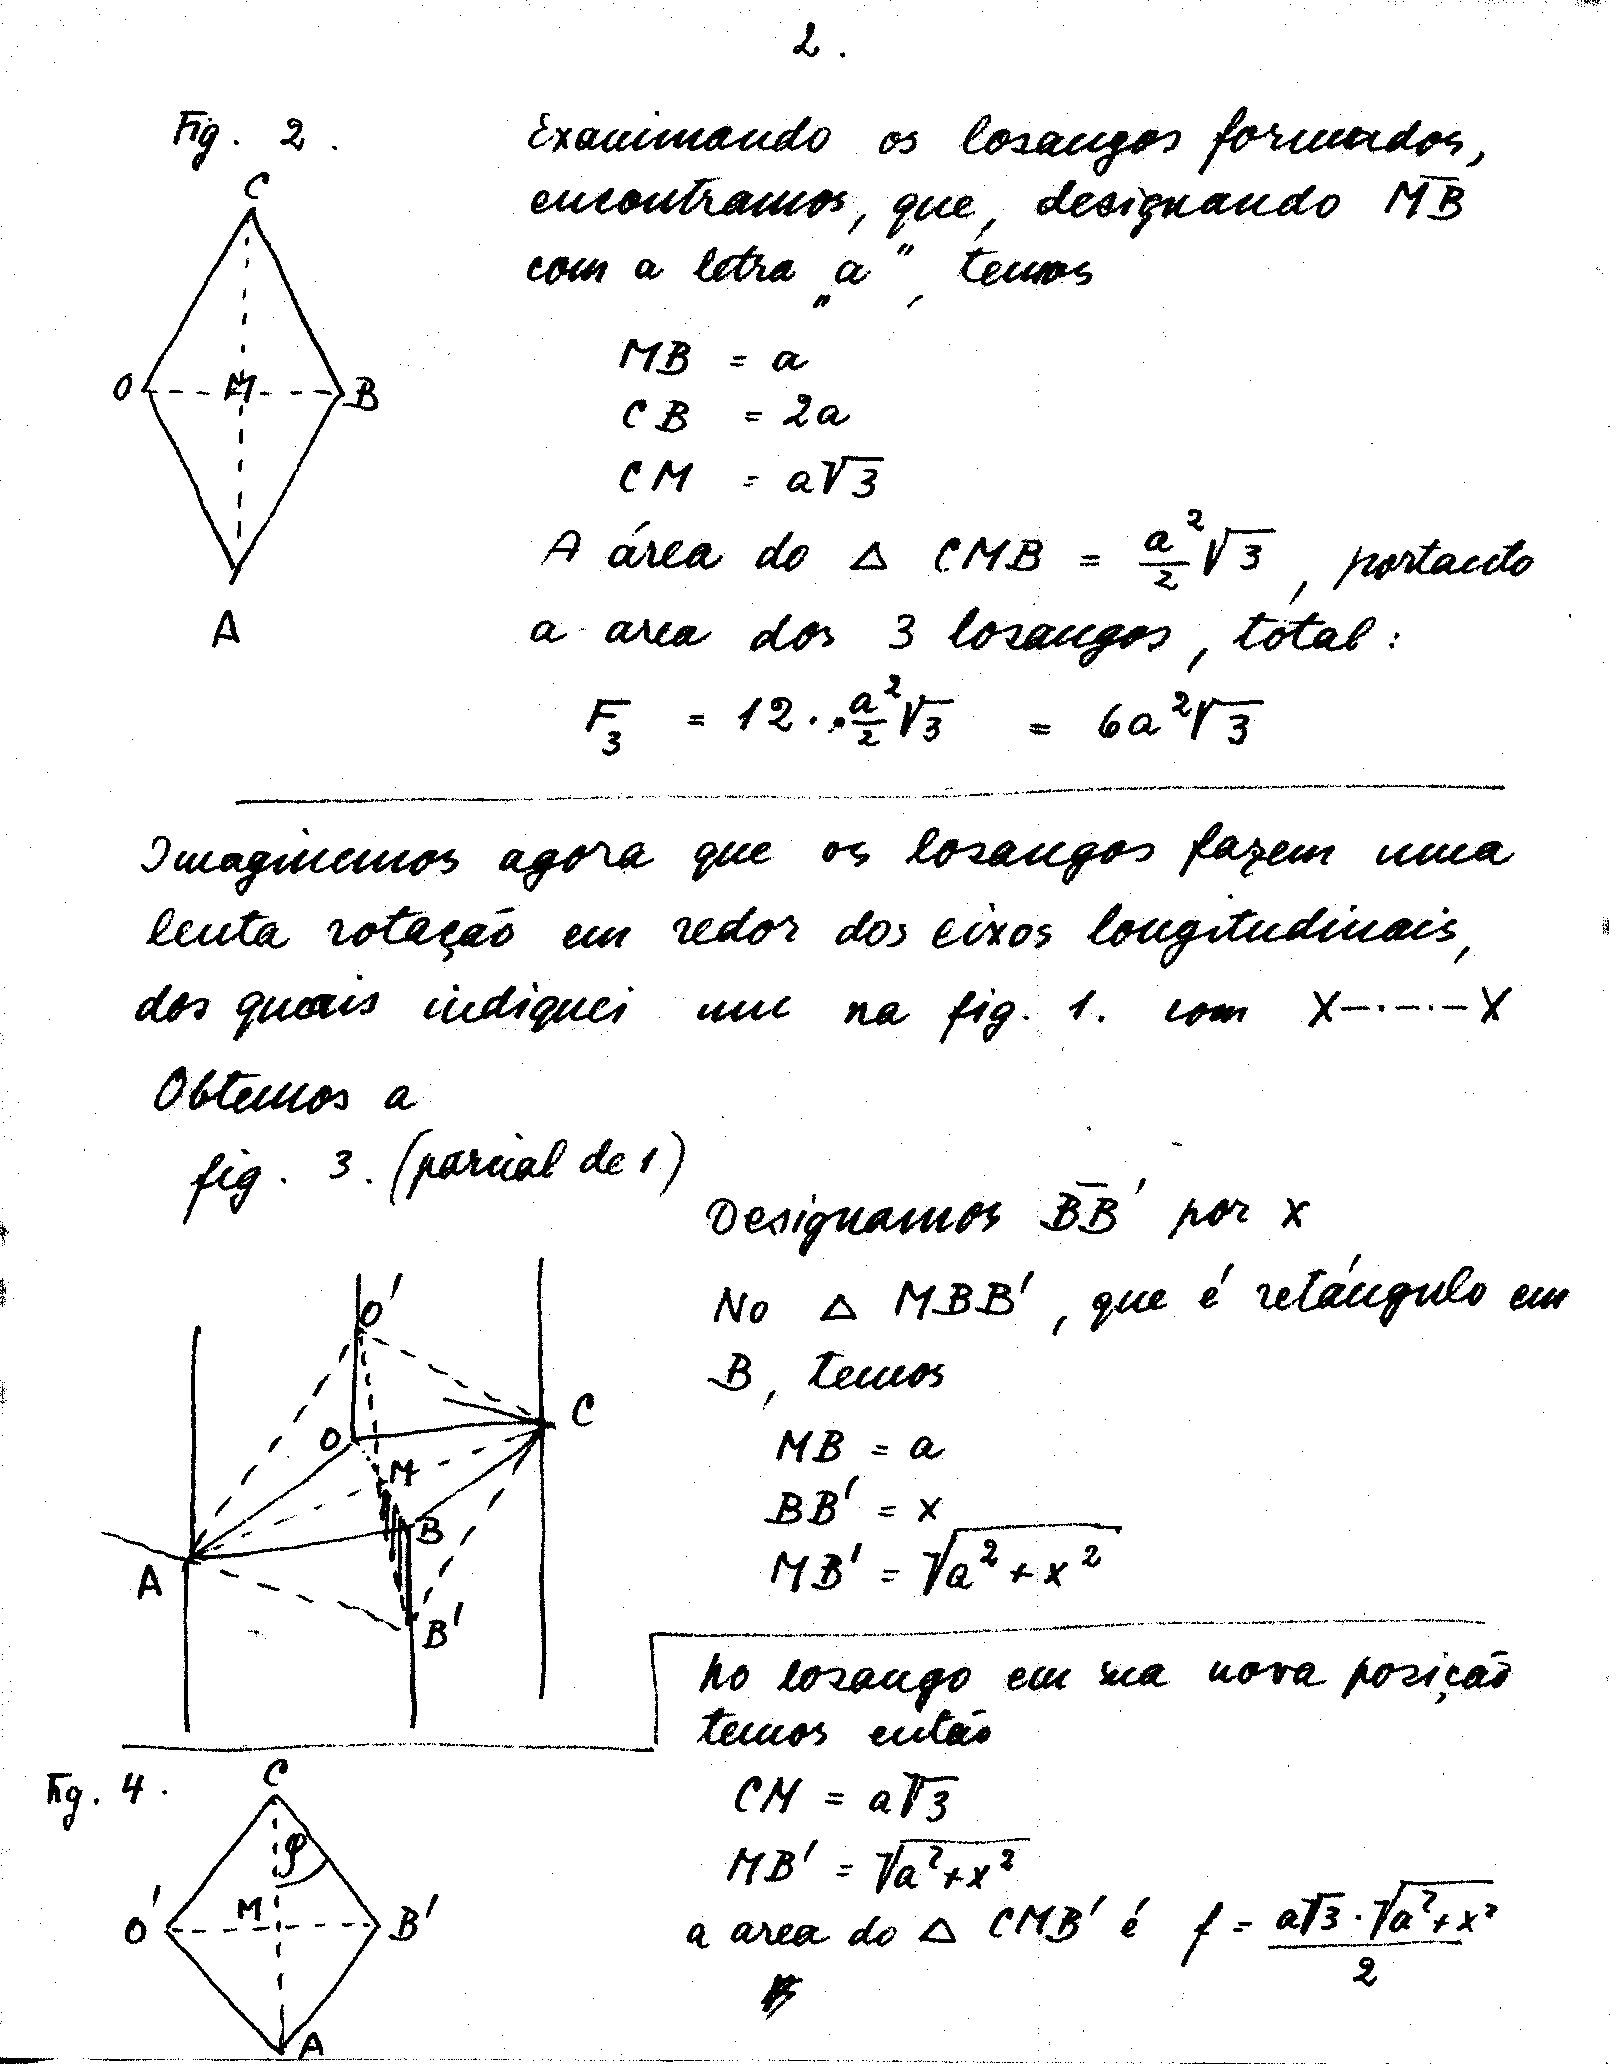 2.
Fig. 2.
C
O
M
B
A
Examimando os losangos formados,
encontramos, que, designando M̅B̅
com a letra „a“, temos
MB = a
CB = 2a
CM = a√3
A área do △ CMB = a²/2 √3, portanto
a area dos 3 losangos, total:
F₃ = 12 · a²/2 √3 = 6a²√3
Imaginemos agora que os losangos fazem uma
lenta rotação em redor dos eixos longitudinais,
dos quais indiquei um na fig. 1. com X-·-·-X
Obtemos a
fig. 3. (parcial de 1)
O'
O
C
M
B
A
B'
Designamos B̅B̅' por x
No △ MBB', que é retángulo em
B, temos
MB = a
BB' = x
MB' = √(a² + x²)
No losango em sua nova posição
temos então
CM = a√3
MB' = √(a²+x²)
a area do △ CMB' é f = (a√3 · √(a²+x²))/2
Fig. 4.
C
φ
O'
M
B'
A